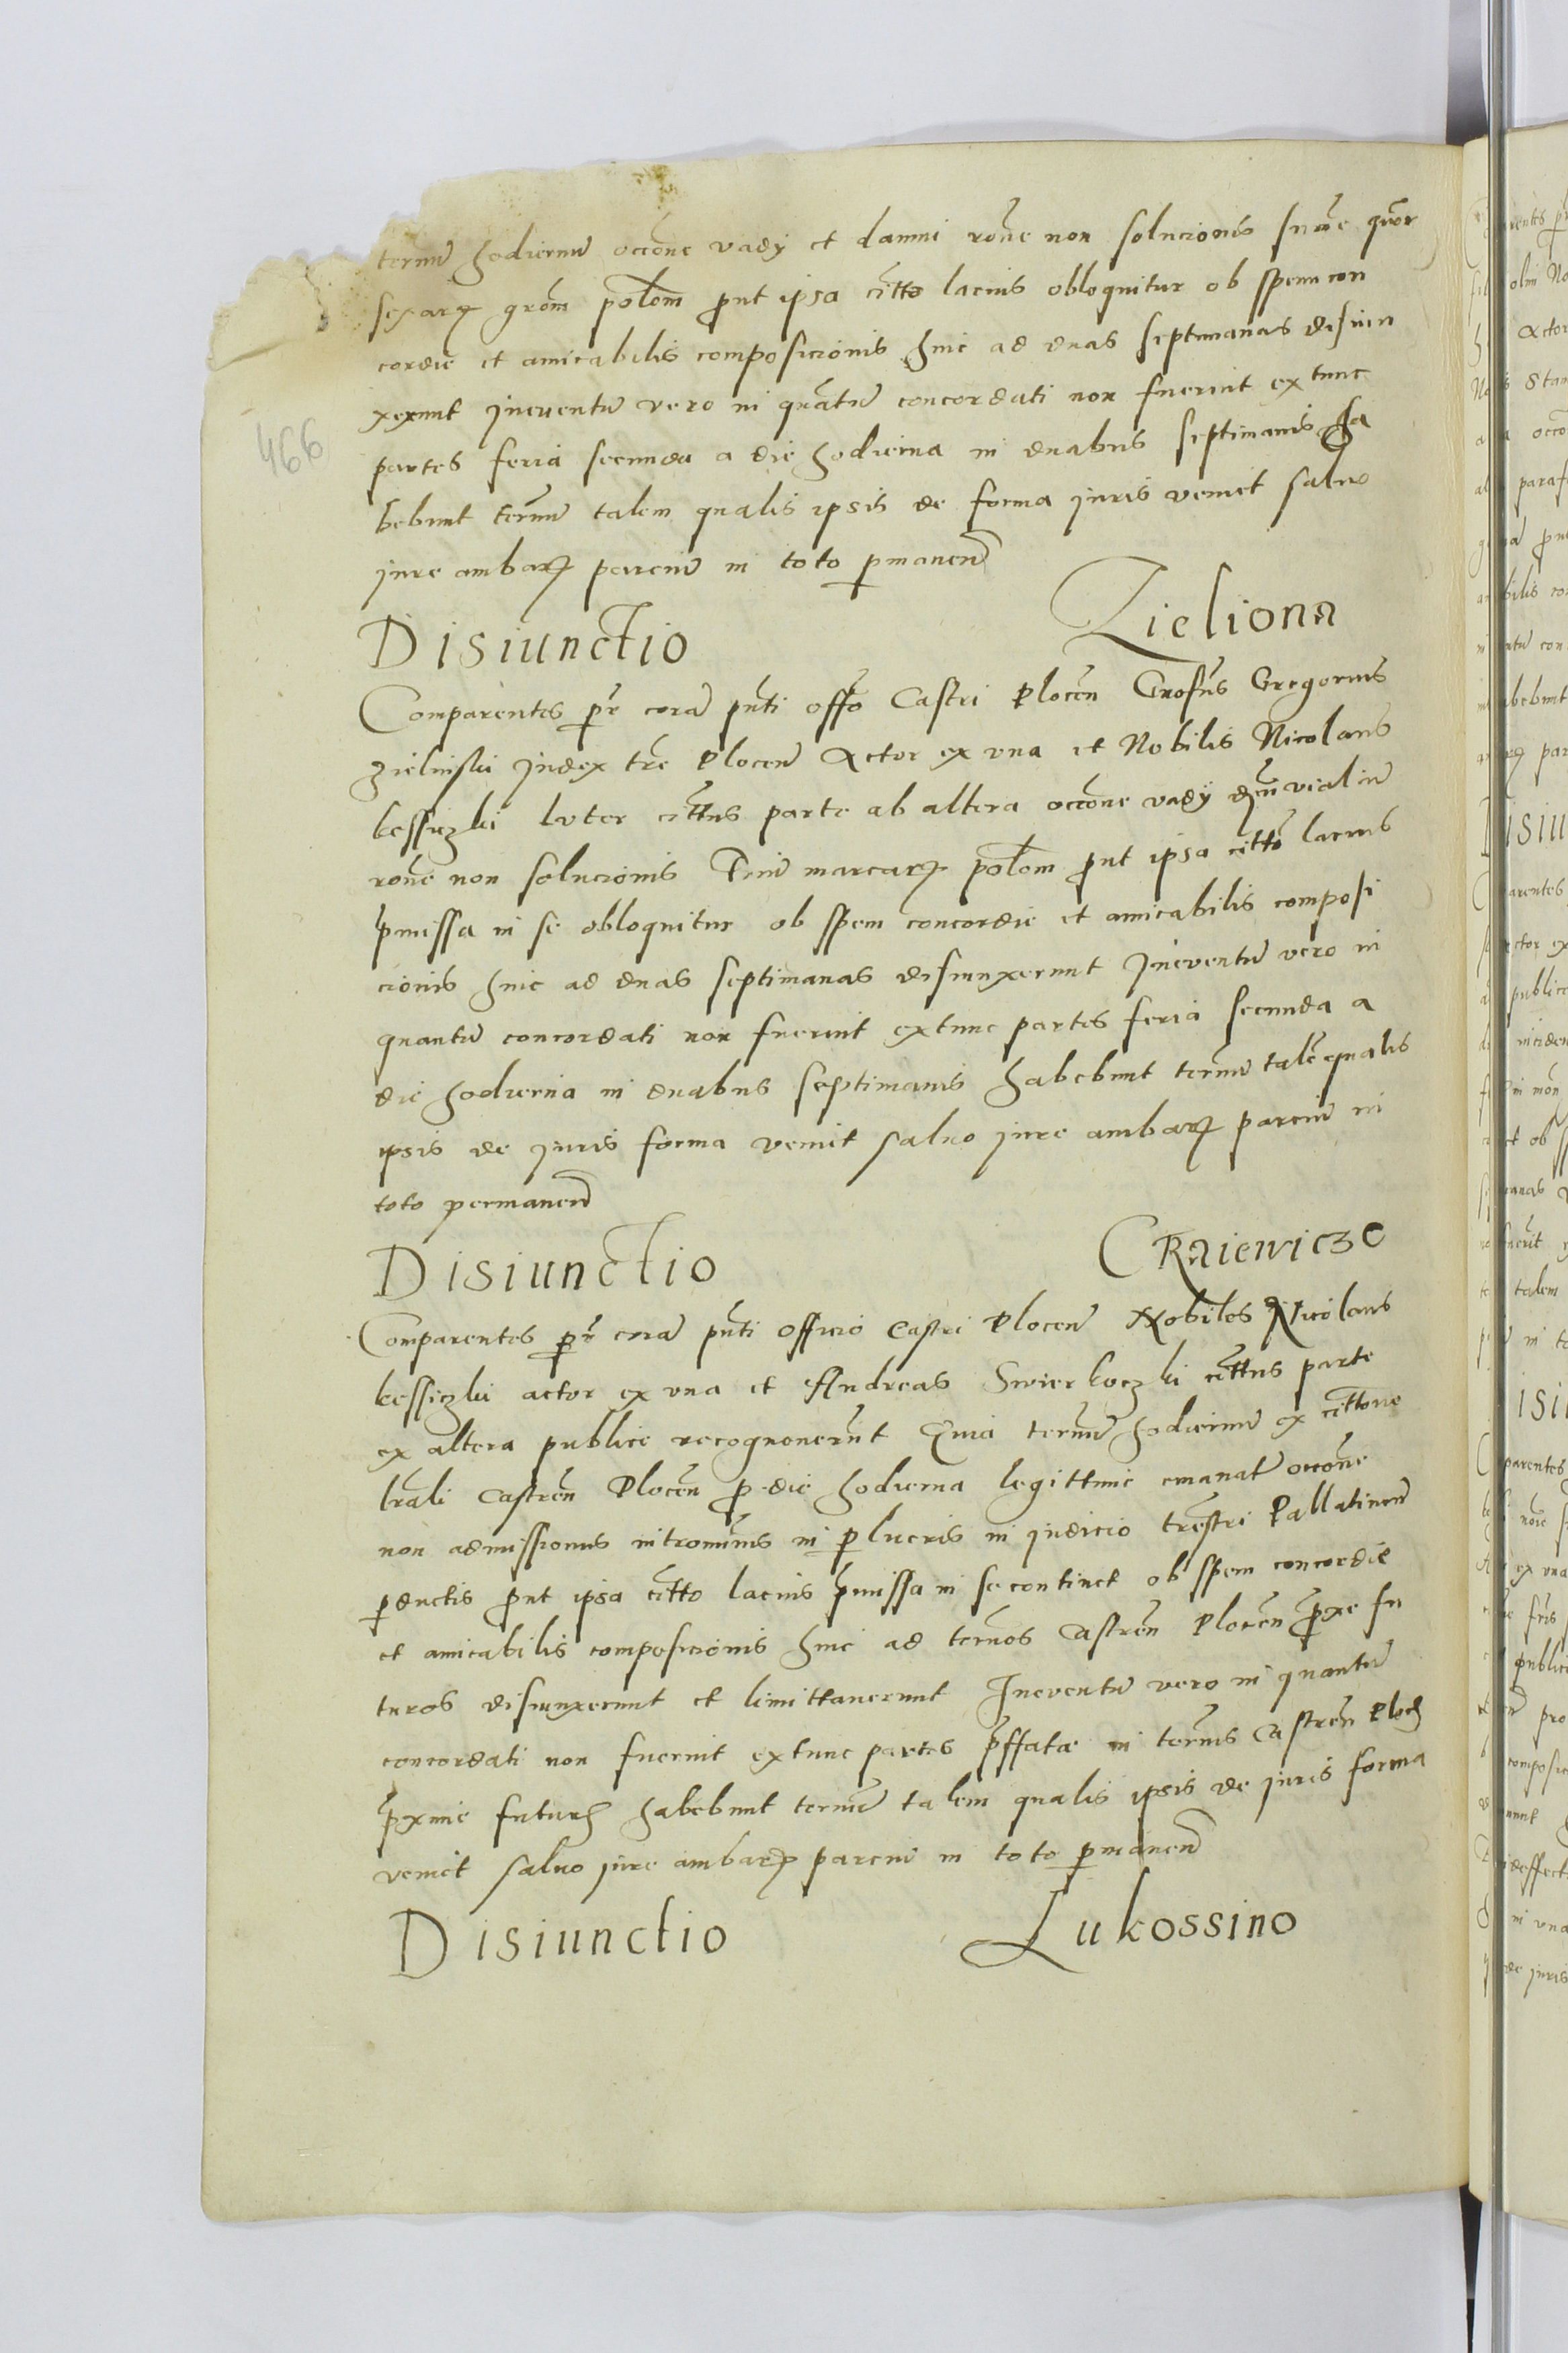 termũ hodiernũ occõne vadÿ et damni rõne non solucionis sum̃e quor
sexarꝝ grõm polõm ꝓut ipsa citto lacius obloquitur ob spem con
cordie et amicabilis composicionis hinc ad duas septimanas disiun
xerunt Ineventũ vero in quãtũ concordati non fuerint extunc
partes feria secunda a die hodierna in duabus septimanis ha
bebunt termũ talem qualis ipsis de forma iuris venit saluo
jure ambarꝝ parciũ in toto ꝑmaneñ
Disiunctio Zieliona
Comparentes ꝑr corã pñti offo Castri Ploceñ Grosus Gregorius
Zielinski Judex tre Ploceñ Actor ex vna et Nobilis Nicolaus
kessiczki luter cittus parte ab altera occõne vadÿ
rõne non solucionis marcarꝝ polõm ꝓut ipsa citto lacius
p̃missa in se obloquitur ob spem concordie et amicabilis composi
cionis hinc ad duas septimanas disiunxerunt Ineventũ vero in
quantũ concordati non fuerint extunc partes feria secunda a
die hodierna in duabus septimanis habebunt termũ talẽ qualis
ipsis de juris forma venit saluo jure ambarꝝ parciũ in
toto permaneñ
Disiunctio CRniewicze
Comparentes ꝑr corã pñti officio castri Ploceñ Nobiles Nicolaus
kessiczki actor ex vna et Andreas Swierkoczki cittus parte
ex altera publice recognouerũt Quia termũ hodiernũ ex cittone
lrali castreñ Ploceñ ꝓ die hodierna legittime emanatũ occõne
non admissionis intromisnis in ꝑ lucris in judicio trestri Pallatineñ
ꝑductis ꝓut ipsa citto lacius p̃missa in se continet ob spem concordie
et amicabilis composicionis hinc ad termos castreñ Ploceñ ꝓxe fu
turos disiunxerunt et limittauerunt Ineventũ vero in quantũ
concordati non fuerint extunc partes p̃ffatæ in termis castreñ Ploceñ
ꝓxime futurꝭ habebunt termũ talem qualis ipsis de juris forma
venit saluo jure ambarꝝ parciũ in toto ꝑmaneñ
Disiunctio Lukossino
466